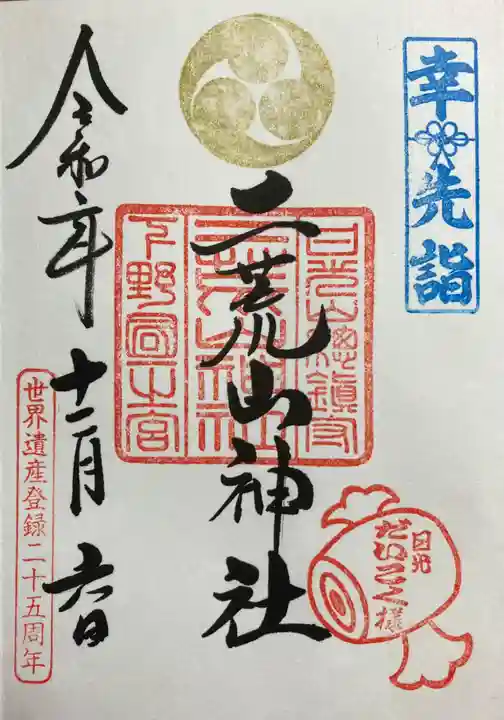 幸先詣
二荒山神社
日光山總鎮守
二荒山神社
下野國一之宮
日光
だいこく様
令和年
月六日
世界遺産登録二十五周年